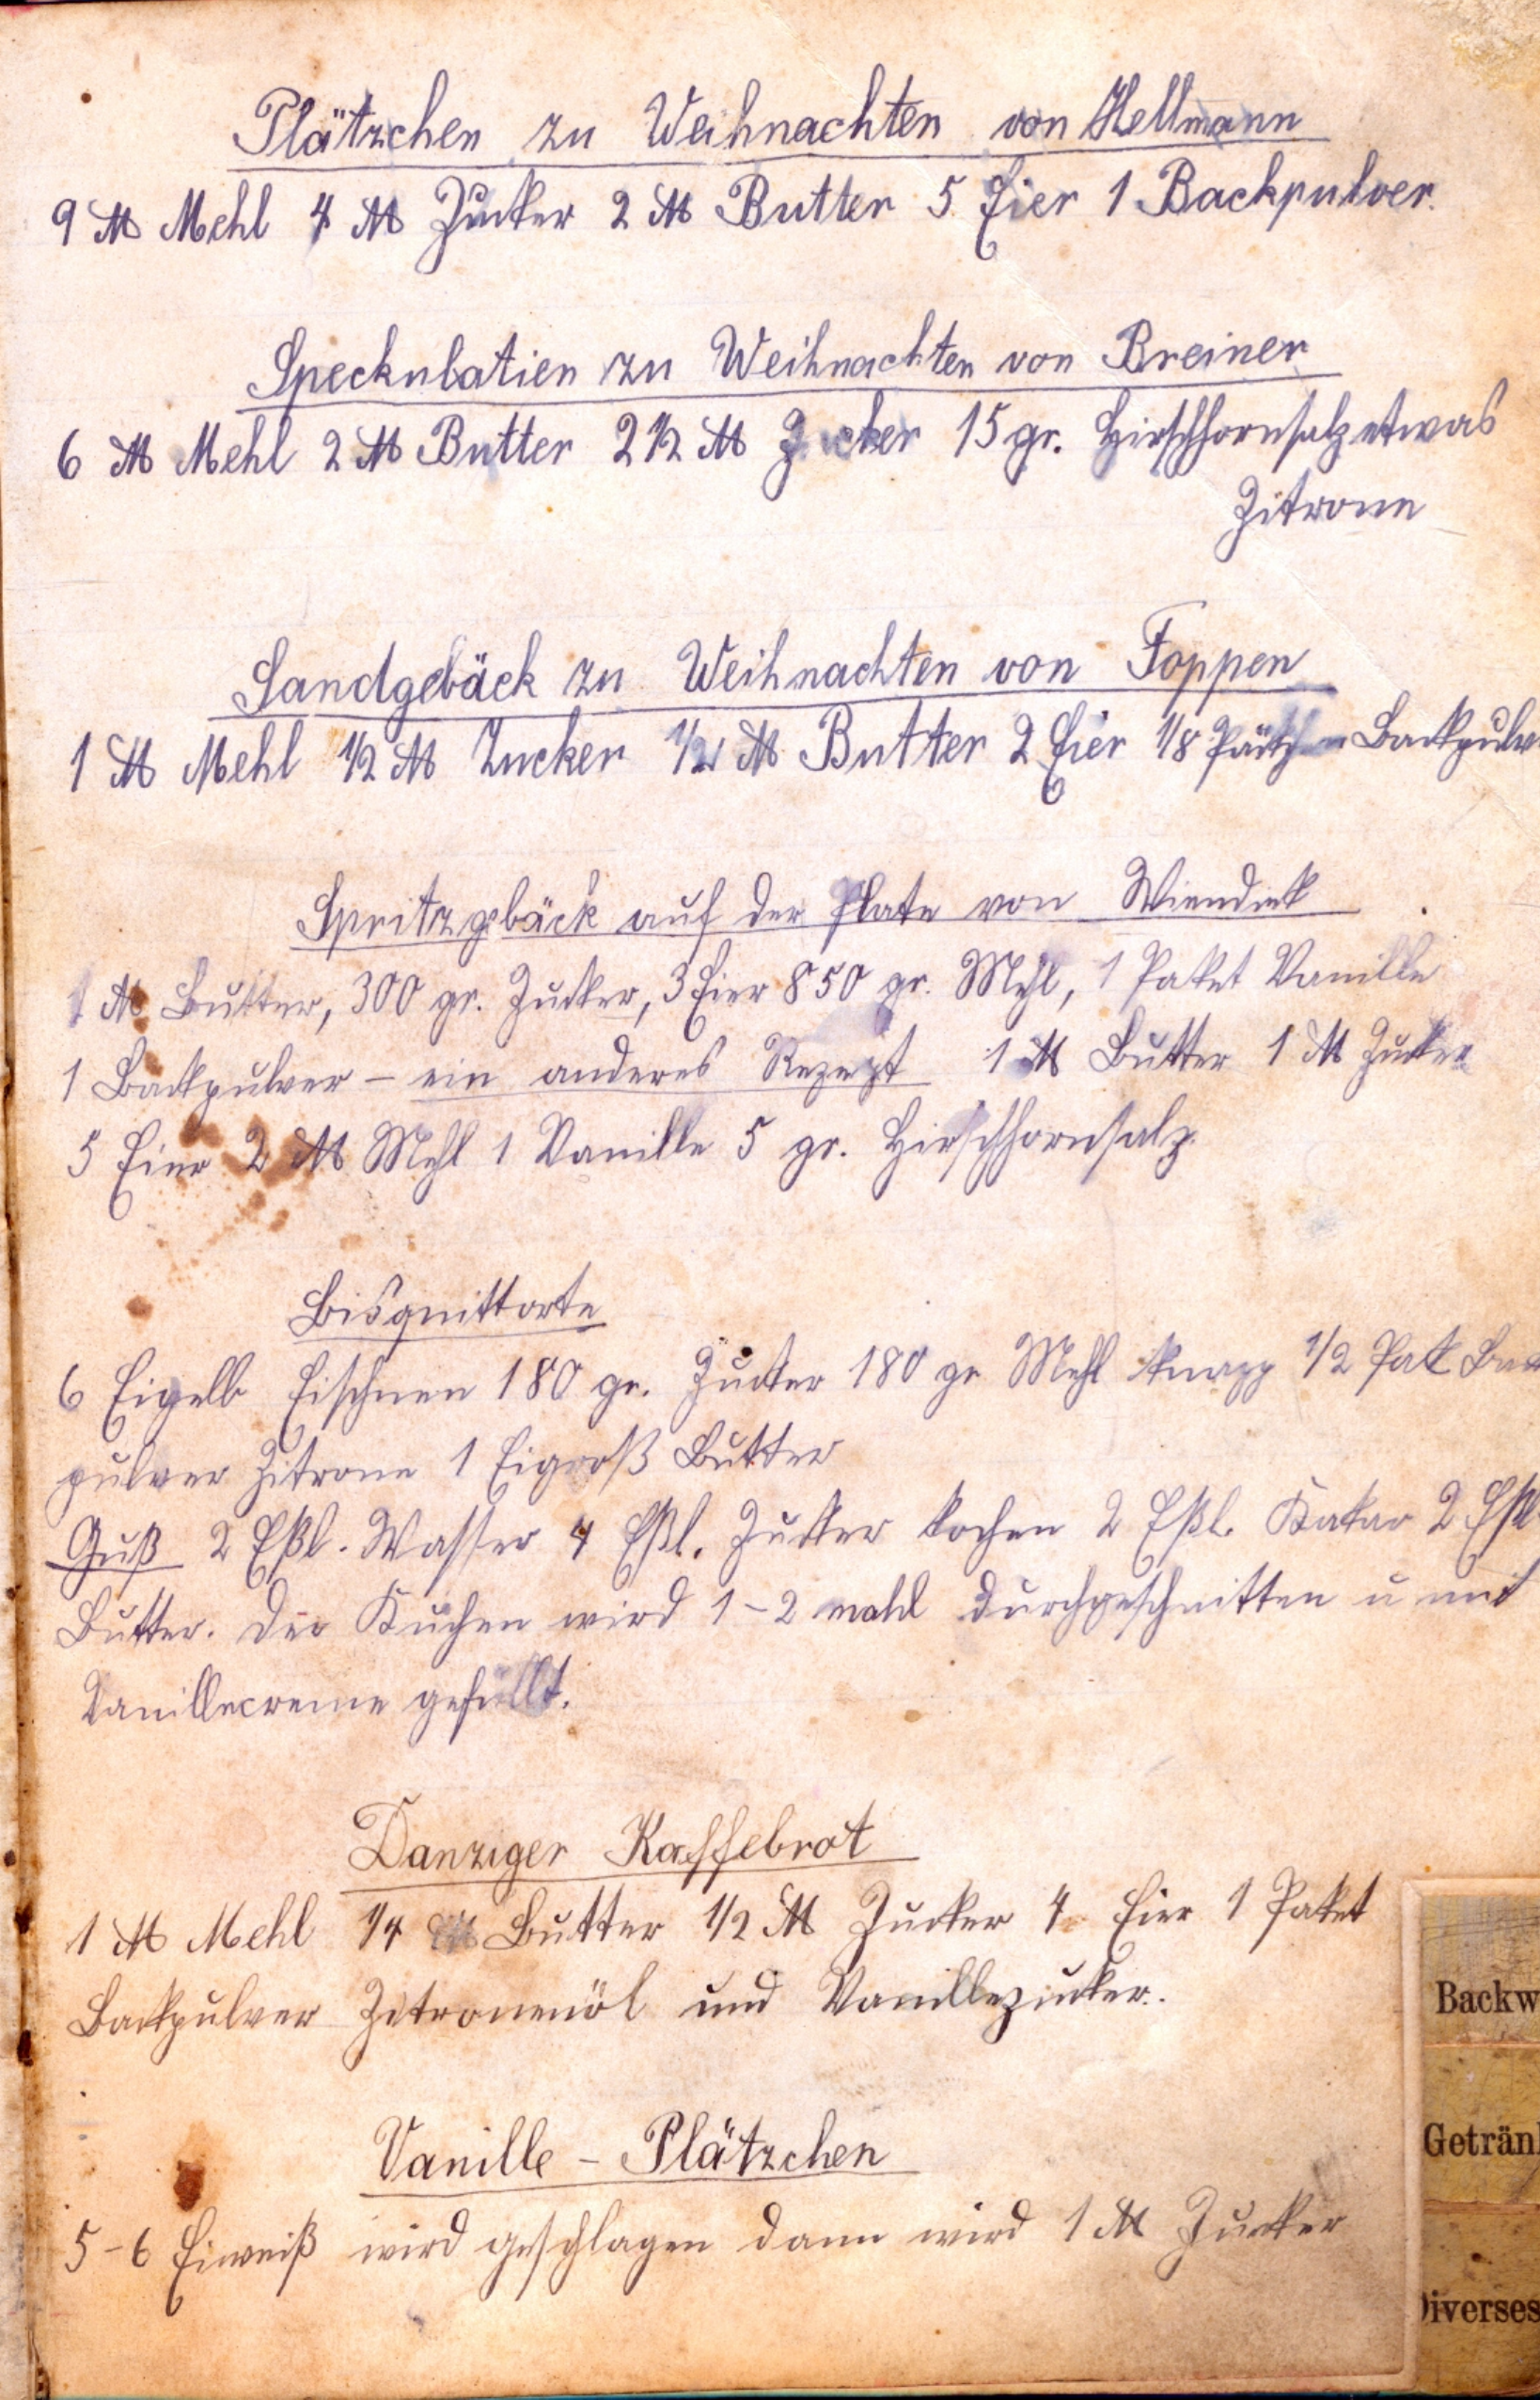 Plätzchen zu Weihnachten von Hellmann
9 ℔ Mehl 4 ℔ Zucker 2 ℔ Butter 5 Eier 1 Backpulver.
Speckulatien zu Weihnachten von Breiner
6 ℔ Mehl 2 ℔ Butter 2 1/2 ℔ Zucker 15 gr. Hirschhornsalz etwas
Zitrone
Sandgebäck zu Weihnachten von Foppen
1 ℔ Mehl 1/2 ℔ Zucker 1/2 ℔ Butter 2 Eier 1/8 Päckchen Backpulv
Spritzgebäck auf der Plate von Wiendiek
1 ℔ Butter, 300 gr. Zucker, 3 Eier 850 gr. Mehl, 1 Paket Vanille
1 Backpulver – ein anderes Rezept 1 ℔ Butter 1 ℔ Zucker
5 Eier 2 ℔ Mehl 1 Vanille 5 gr. Hirschhornsalz.
Bisquittorte
6 Eigelb Eischnee 180 gr. Zucker 180 gr Mehl knapp 1/2 Pak Back
pulver Zitrone 1 Eigroß Butter
Guß 2 Eßl. Wasser 4 Eßl. Zucker kochen 2 Eßl. Kakao 2 Eßl.
Butter. Der Kuchen wird 1–2 mahl durchgeschnitten u mit
Vanillecreme gefüllt.
Danziger Kaffebrot
1 ℔ Mehl 1/4 ℔ Butter 1/2 ℔ Zucker 4 Eier 1 Paket
Backpulver Zitronenöl und Vanillezucker.
Vanille – Plätzchen
5–6 Eiweiß wird geschlagen dann wird 1 ℔ Zucker
Backw
Getränk
Diverses